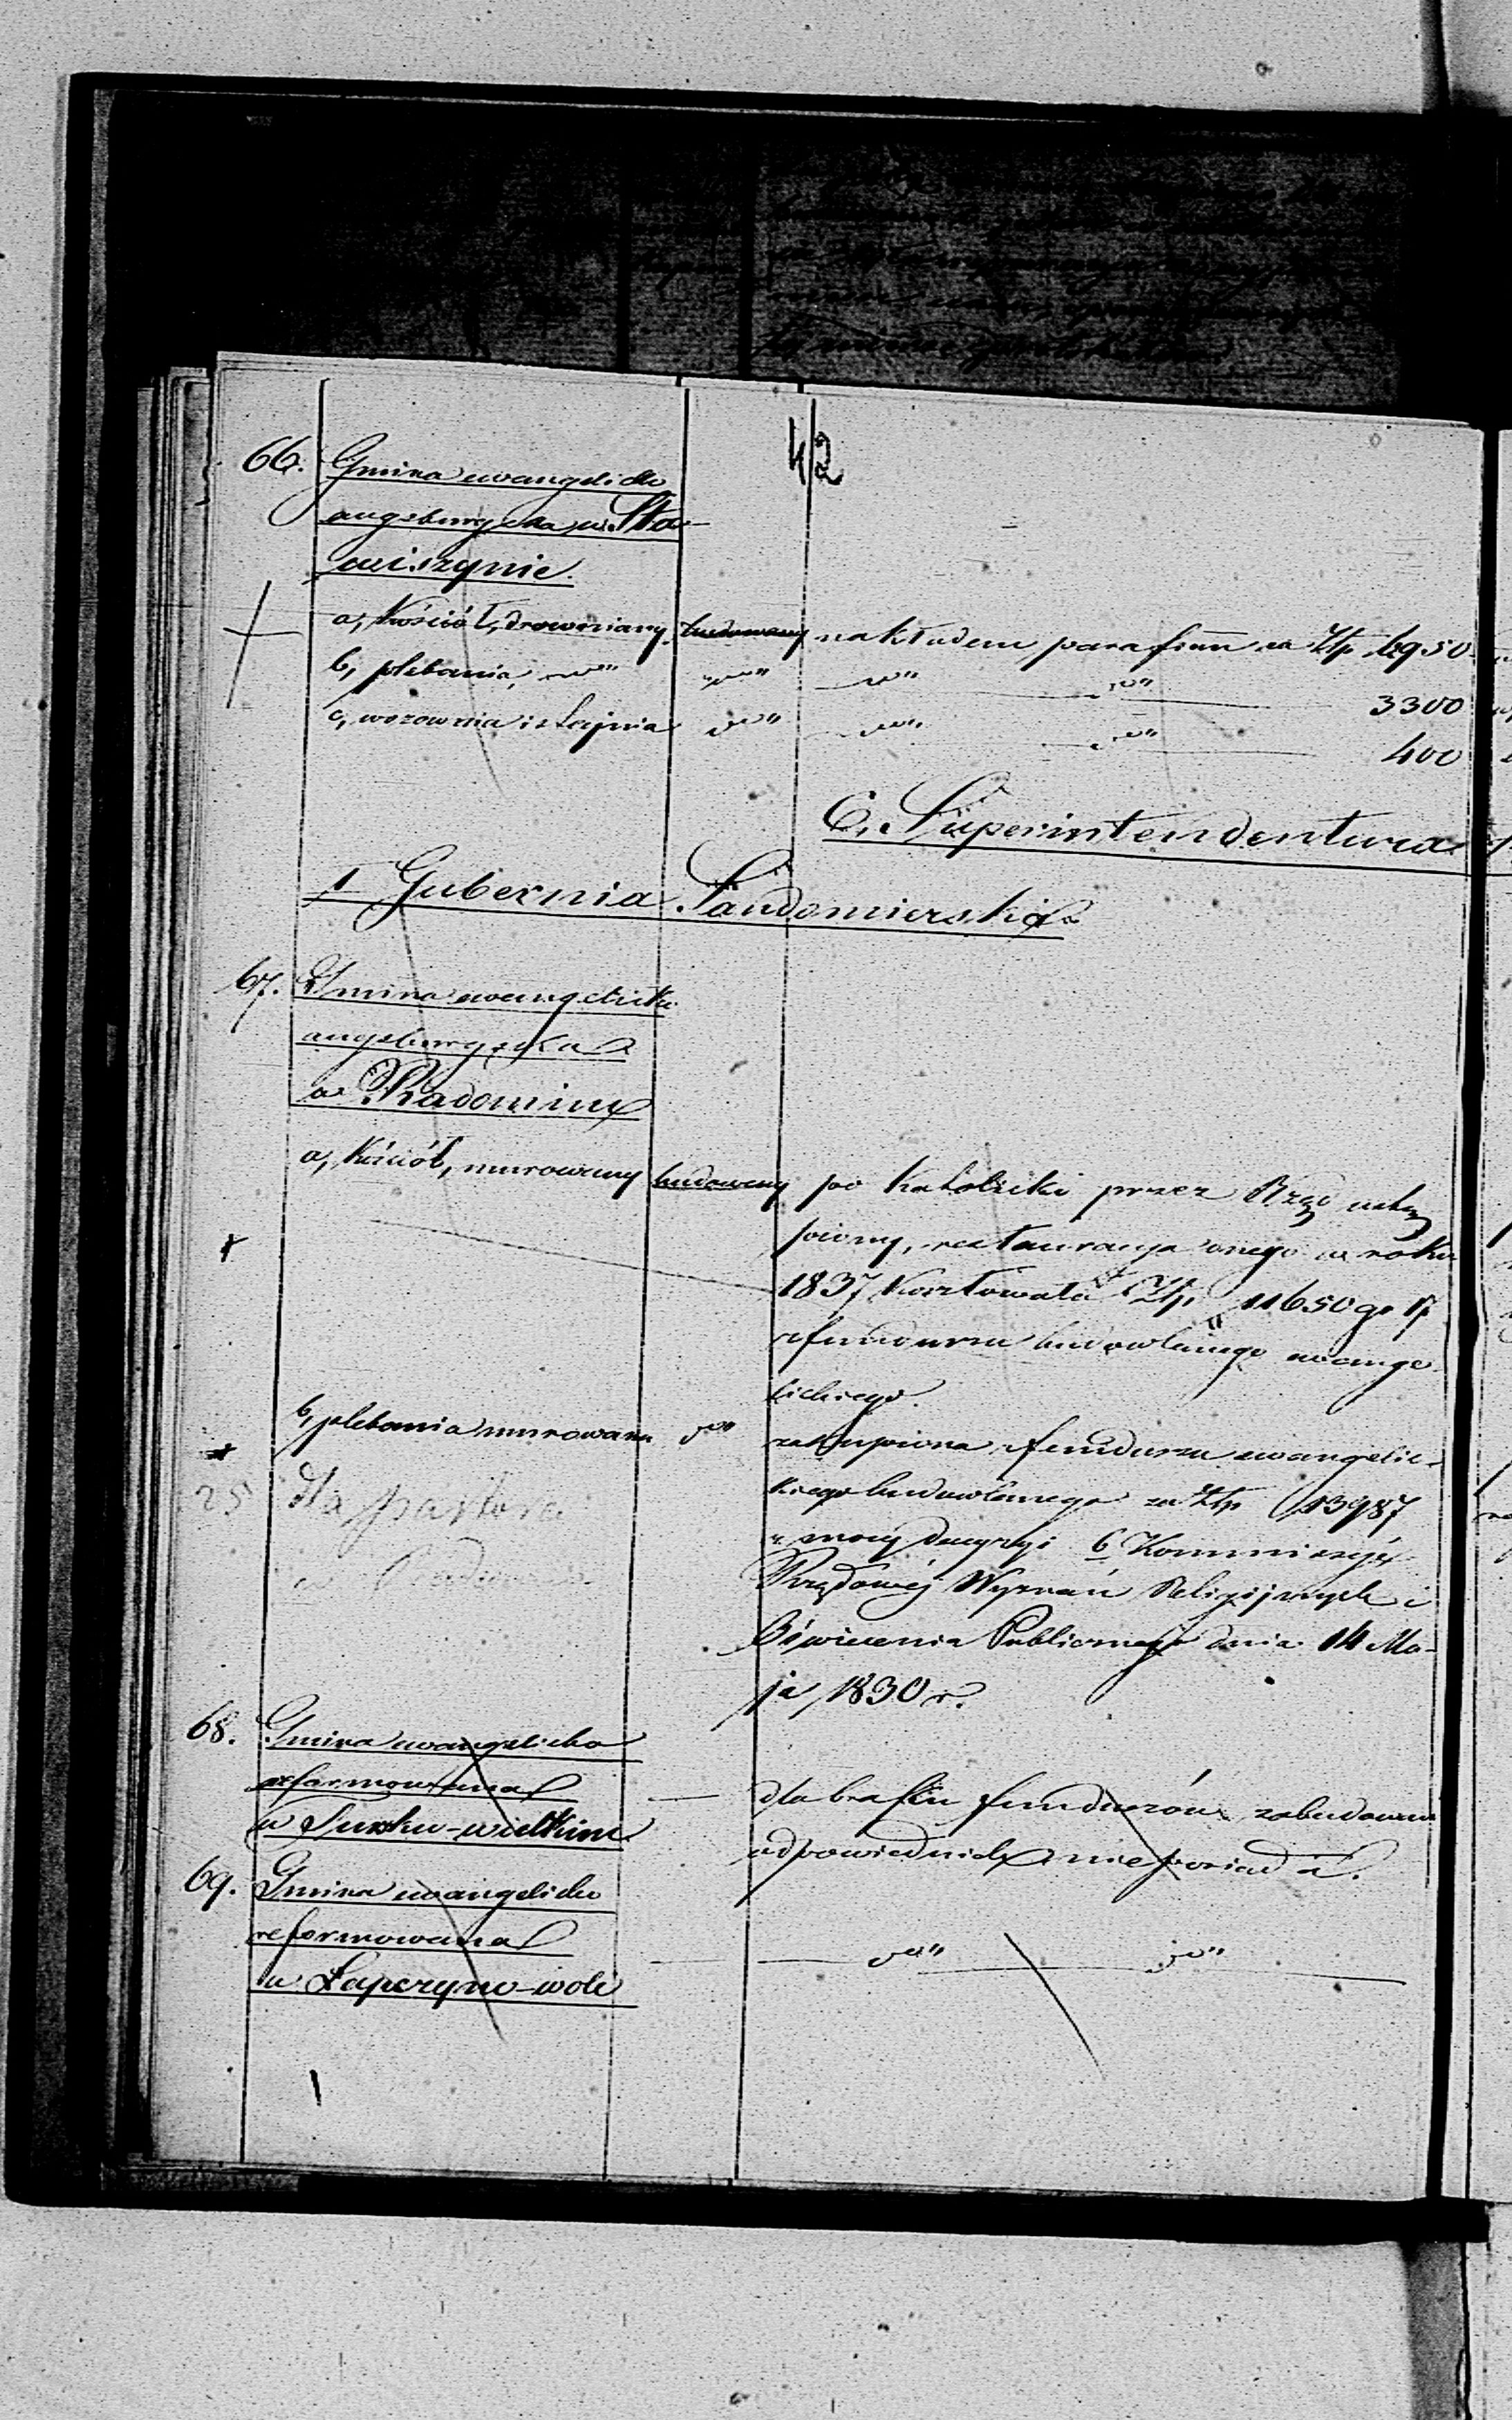 42
66. Gmina ewangelicko
augsburgska w Sta-
wiszynie.
a, Kościół, drewniany budowany nakładem parafian za Złp 4950
b, plebania, d° " d° " d° " d° " 3300
c, wozownia i stajnia d° " d° " d° " 400
C. Superintendentura
I Gubernia Sandomierska
67. Gmina ewangelicko
augsburgska
w Radomiu
a, Kościół, murowany budowany po Katolicki przez Rząd ustą
piony, restauracja onego w roku
1837 kosztowała Złp 11650 gr
z funduszu budowlanego ewange-
lickiego.
b, plebania murowana d° " zakupiona z funduszu ewangelic-
kiego budowlanego za Złp 13987
z mocy decyzyi b Kommissyi
Rządowéj Wyznań Religijnych i
Oświecenia Publicznego dnia 14 Ma-
ja 1830 r.
25 dla pastora
w Radomiu
68. Gmina ewangelicko
reformowana
w Sielcu-wielkim
dla braku funduszów zabudowań
odpowiednich nie posiada.
69. Gmina ewangelicko
reformowana
w Łapczyno-woli
d° " d° "